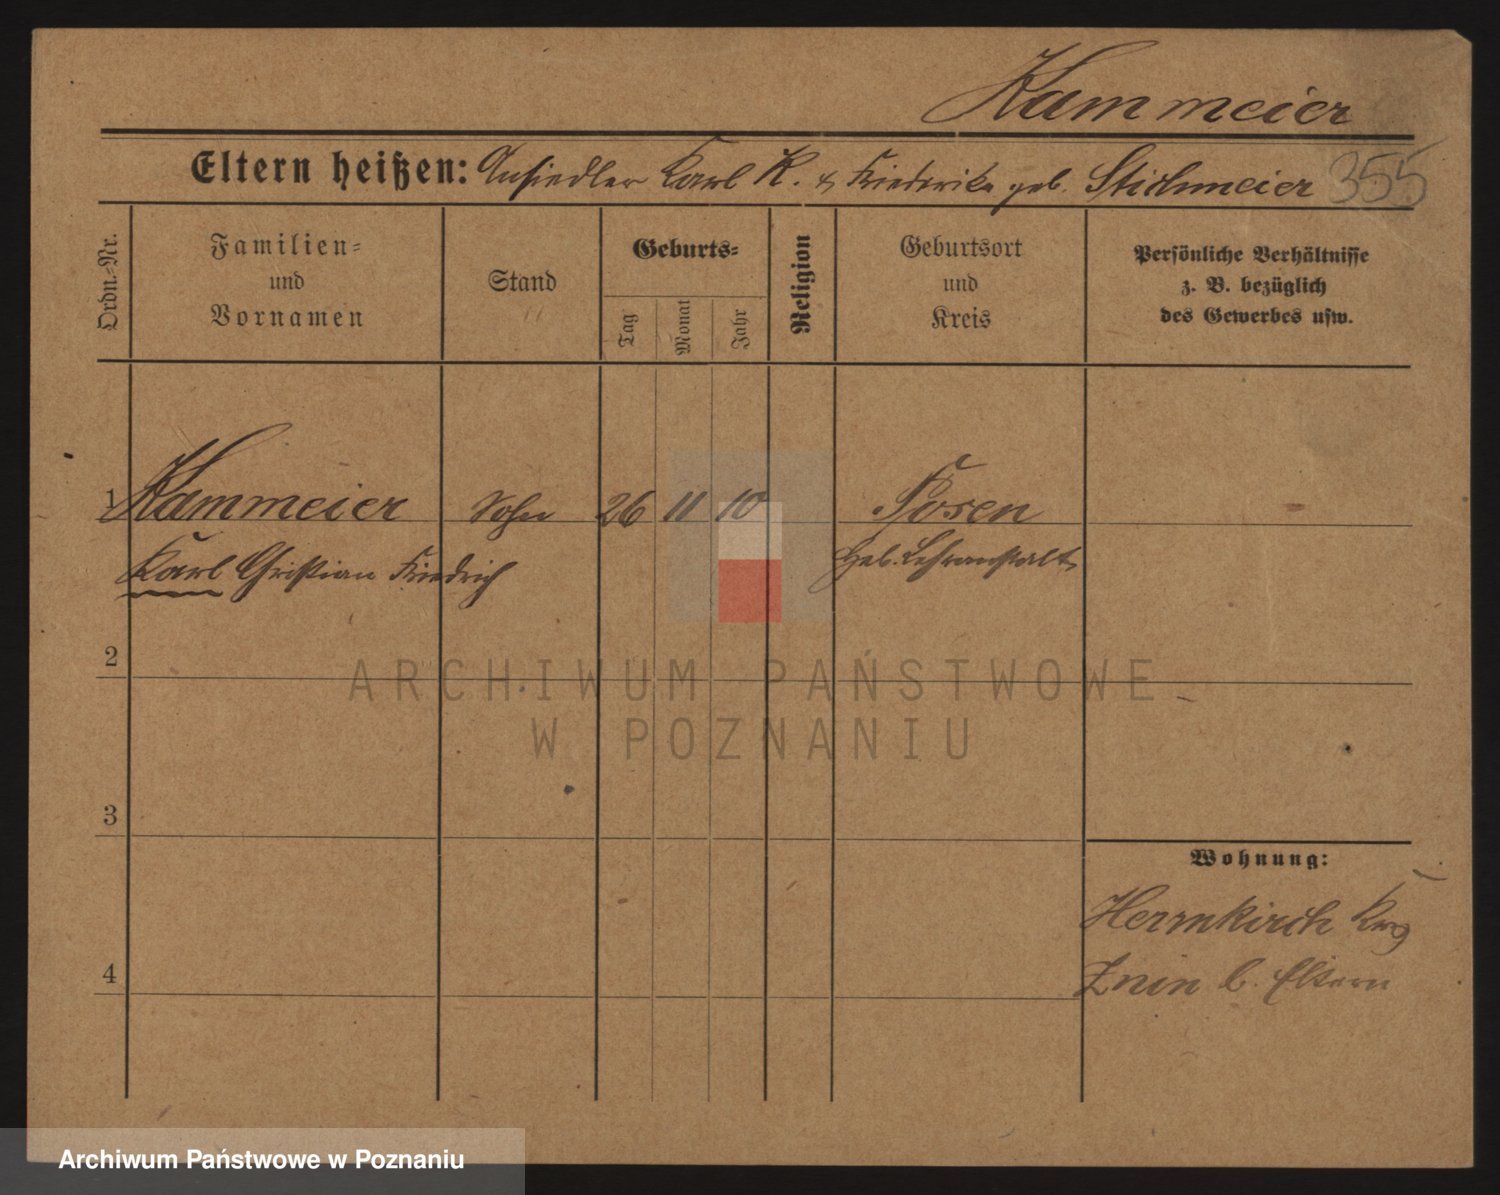 Kammeier
Eltern heißen: Ansiedler Karl K. & Friederike geb. Stichmeier 355
Ordn.-Nr.
Familien-
und
Vornamen
Stand
Geburts-
Tag
Monat
Jahr
Religion
Geburtsort
und
Kreis
Persönliche Verhältnisse
z. B. bezüglich
des Gewerbes usw.
1 Kammeier Sohn 26 11 10 Posen
Karl Christian Friedrich Heb. Lehranstalt
2
ARCHIWUM PAŃSTWOWE
W POZNANIU
3
Wohnung:
Herrnkirch Krs
4 Znin b. Eltern
Archiwum Państwowe w Poznaniu